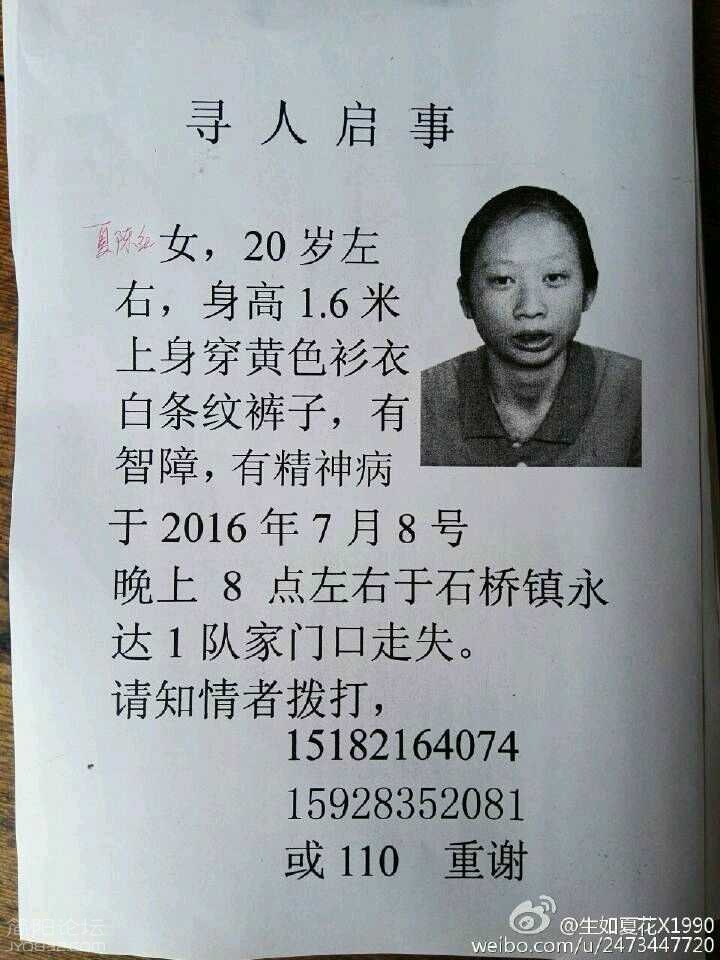 寻人启事
夏陈 女，20岁左
右，身高1.6米
上身穿黄色衫衣
白条纹裤子，有
智障，有精神病
于2016年7月8号
晚上 8 点左右于石桥镇永
达1队家门口走失。
请知情者拨打，
15182164074
15928352081
或110 重谢
简阳论坛
@生如夏花X1990
weibo.com/u/2473447720